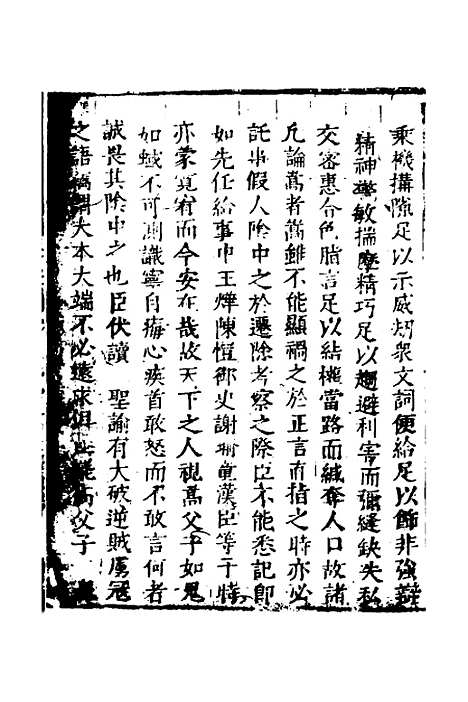 乘機搆隙足以示威劫衆文詞便給足以飾非強辯
精神敏揣摩精巧足以趨避利害而彌縫缺失私
交密惠令色脂言足以結權當路而緘奪人口故諸
凢論嵩者嵩雖不能顯禍之於正言直指之時亦必
託事假人陰中之於遷除考察之際臣不能悉記即
如先任給事中王燁陳愷御史謝瑜童漢臣等于時
亦蒙寛宥而今安在哉故天下之人視嵩父子如鬼
如蜮不可測識寧自痛心疾首敢怒而不敢言何者
誠畏其陰中之也臣伏讀 聖諭有大破逆賊虜冦
之語竊謂大本大端不必遠求嵩父子